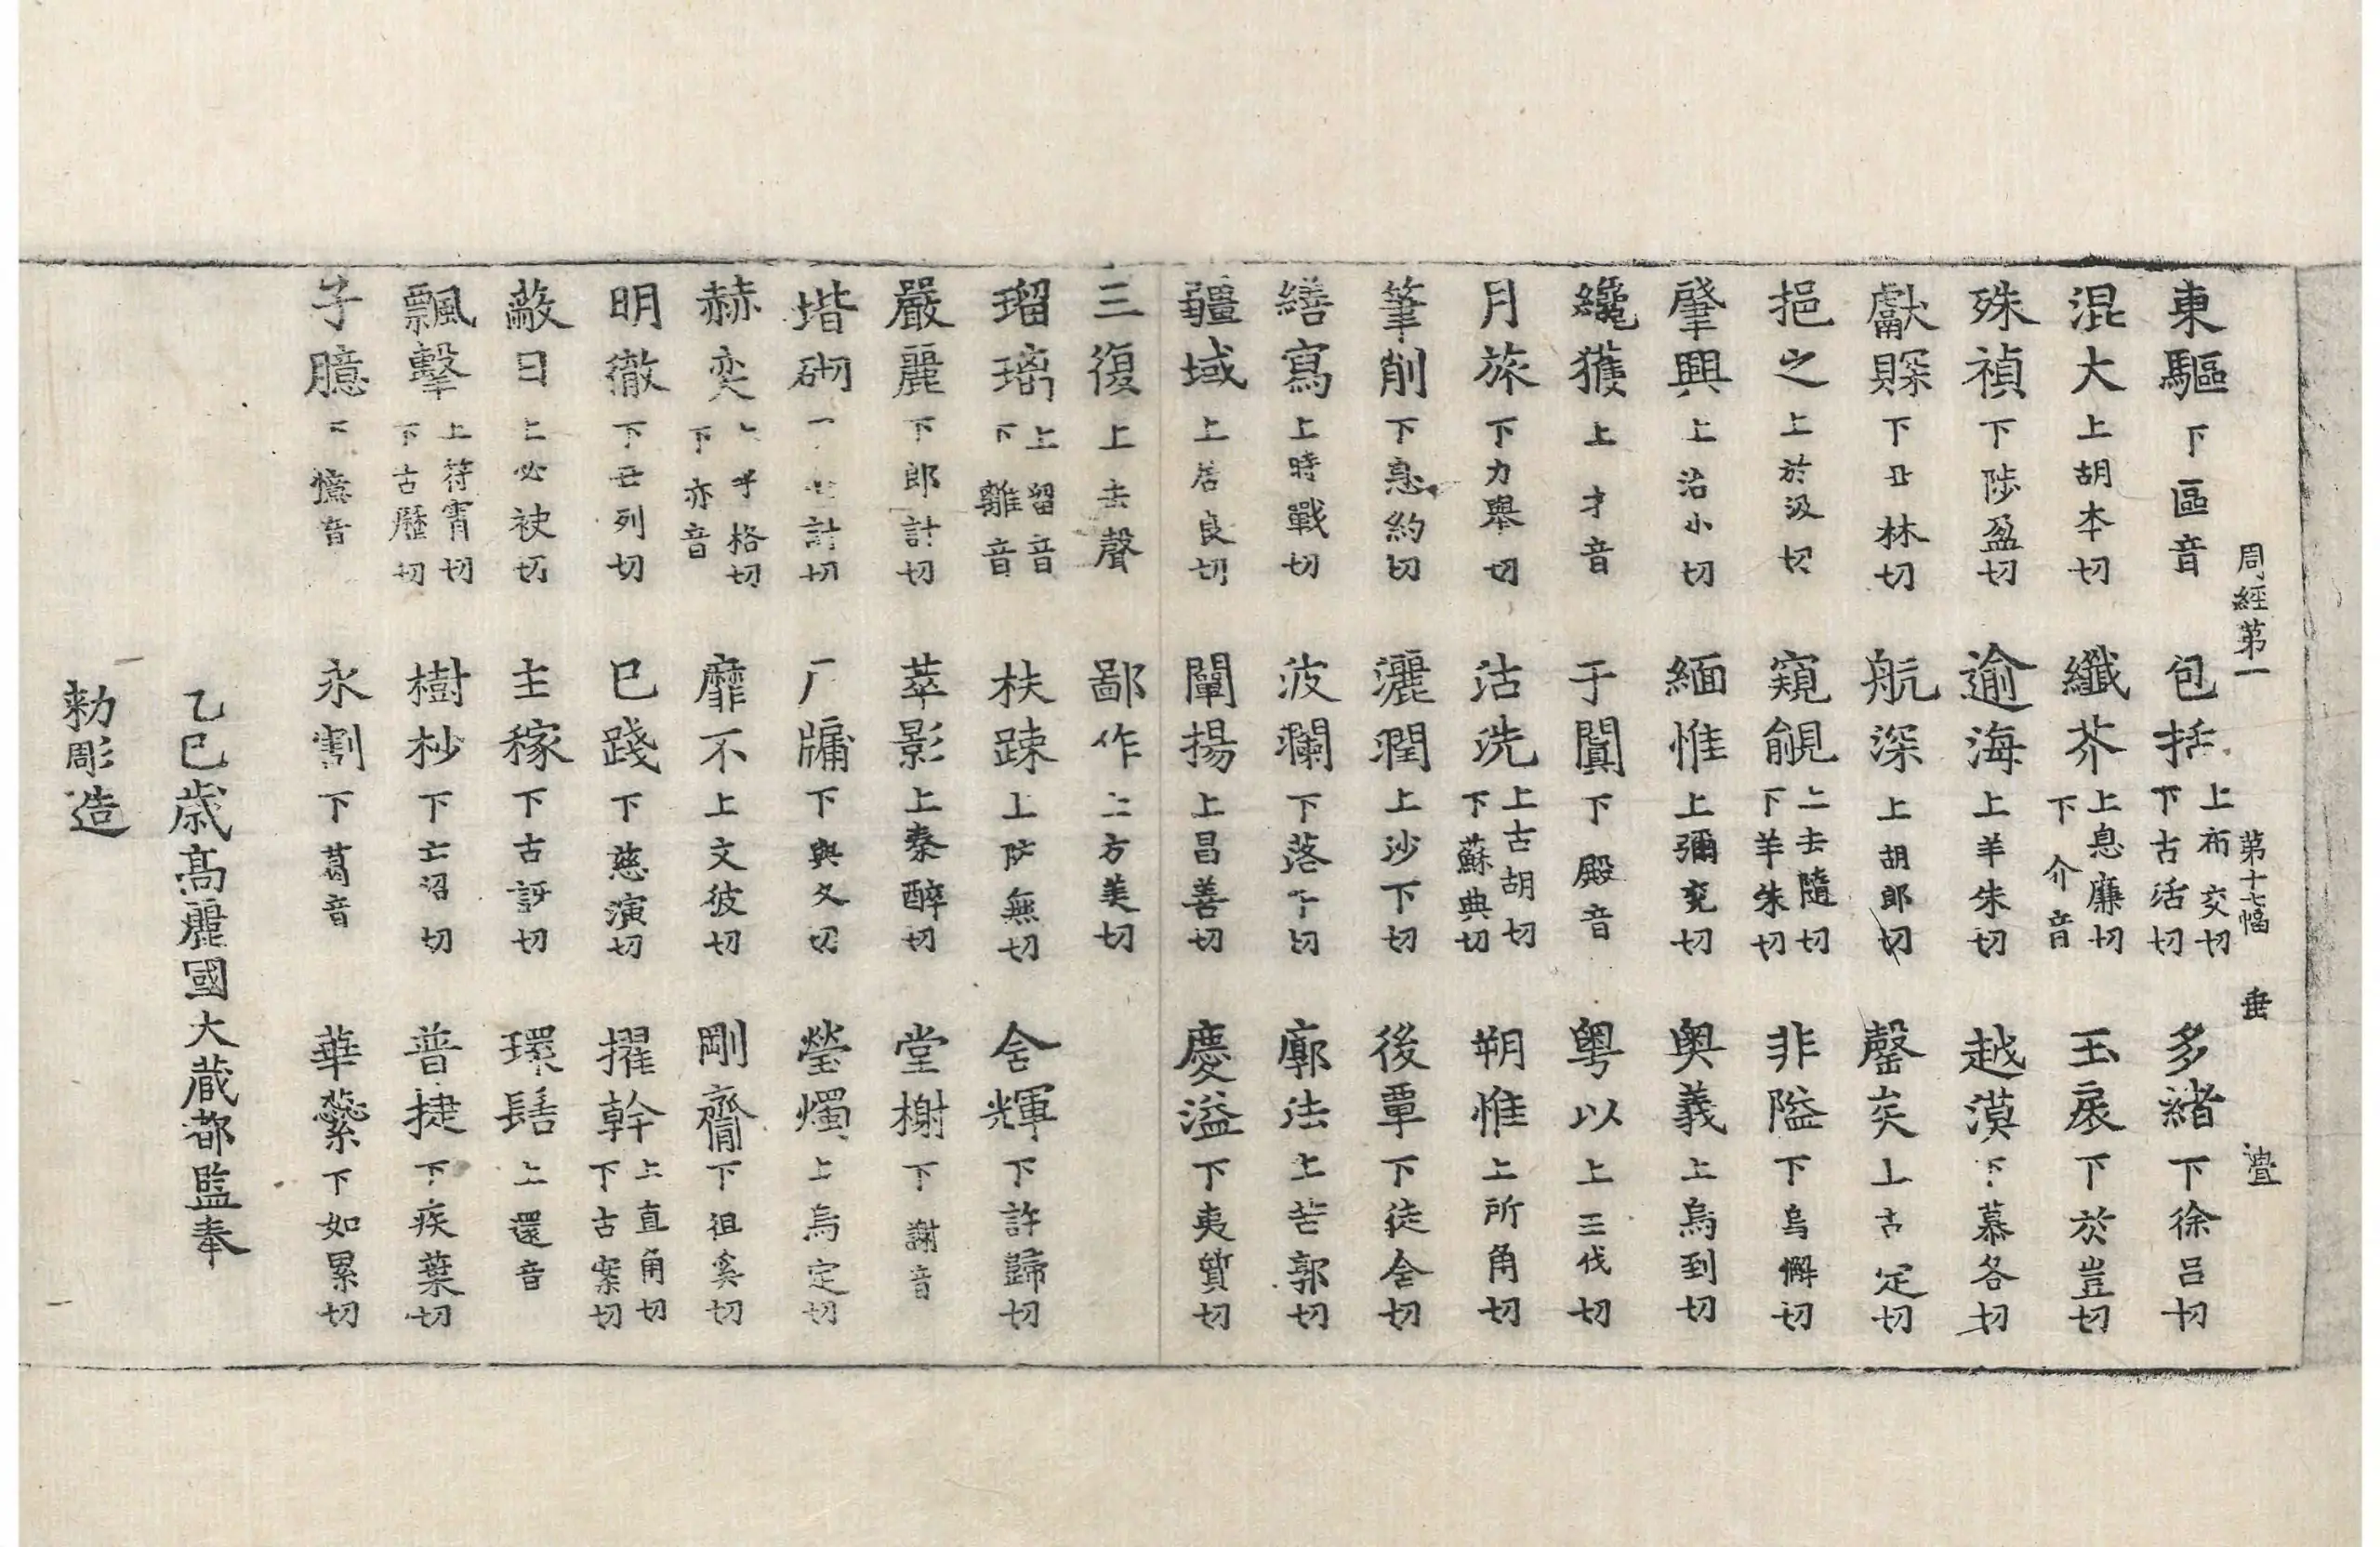 周經第一 第十七幅 垂 㳫
東驅下區音 包括上布交切下古活切 多緒下徐呂切
混大上胡本切 纖芥上息廉切下介音 玉扆下於豈切
殊禎下陟盈切 逾海上羊朱切 越漠下慕各切
獻賝下丑林切 航深上胡郎切 罄矣上古定切
挹之上於汲切 窺覦上去隨切下羊朱切 非隘下烏懈切
肇興上治小切 緬惟上彌兖切 奥義上烏到切
纔獲上才音 于闐下殿音 粤以上王伐切
月旅下力舉切 沽洗上古胡切下蘇典切 朔惟上所角切
筆削下息約切 灑潤上沙下切 後覃下徒含切
繕寫上時戰切 波瀾下落干切 廓法上苦郭切
疆域上居良切 闡揚上昌善切 慶溢下夷質切
三復上去聲 鄙作上方美切
瑠璃上留音下離音 扶踈上防無切 含輝下許歸切
嚴麗下郎計切 萃影上秦醉切 堂榭下謝音
堦砌計切 牖下與久切 瑩燭上烏定切
赫奕上呼格切下亦音 靡不上文彼切 剛齎下祖奚切
明徹下丑列切 已踐下慈演切 擢幹上直角切下古案切
蔽曰上必袂切 主稼下古訝切 環髻上還音
飄擊上符宵切下古歷切 樹杪下亡沼切 普捷下疾葉切
子臆下憶音 永割下葛音 華蘂下如累切
乙巳歳髙麗國大藏都監奉
勑彫造